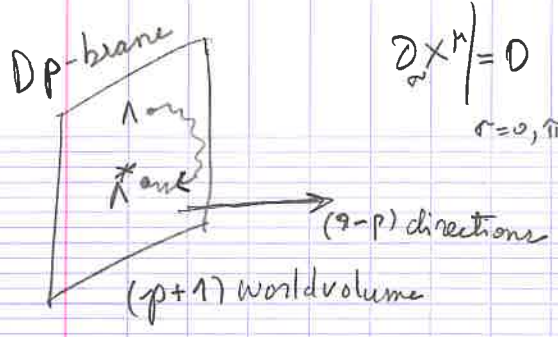 Dp-brane
∂_σ X^μ | = 0
σ=0, π
Λ
Λ*
(9-p) directions
(p+1) worldvolume